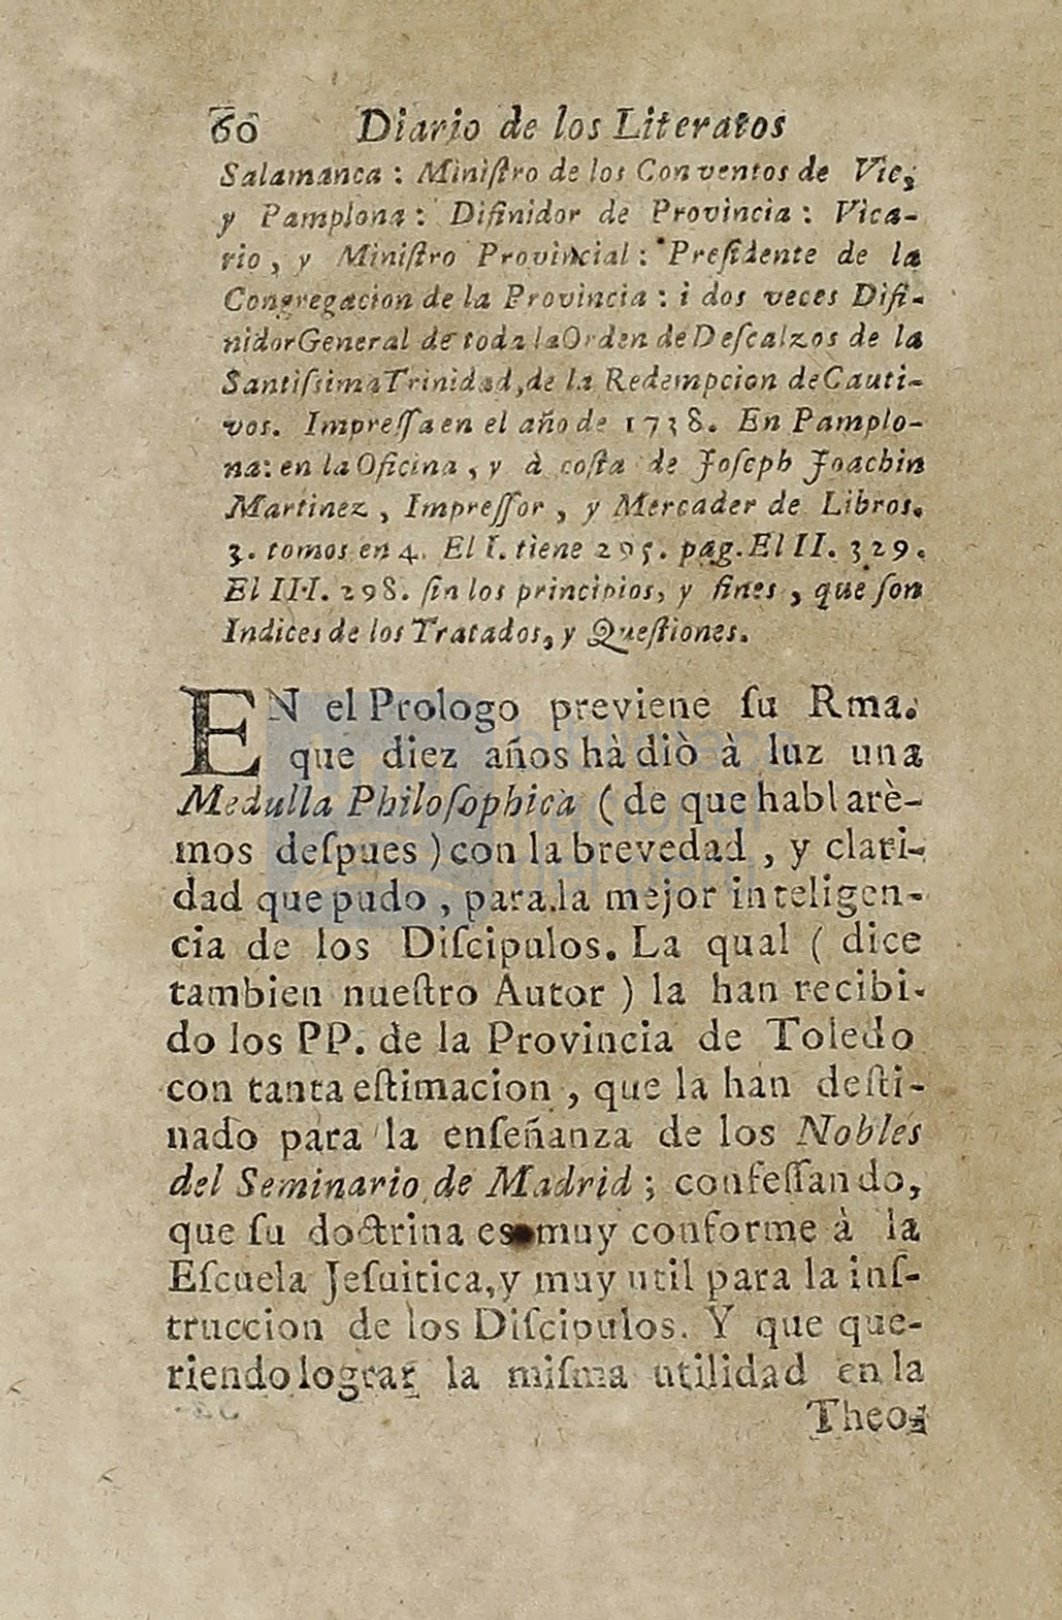 60 Diario de los Literatos
Salamanca : Miniſtro de los Conventos de Vic,
y Pamplona : Difinidor de Provincia : Vica-
rio , y Miniſtro Provincial : Preſidente de la
Congregacion de la Provincia : i dos veces Difi-
nidor General de toda la Orden de Deſcalzos de la
Santiſsima Trinidad, de la Redempcion de Cauti-
vos. Impreſſa en el año de 1738. En Pamplo-
na: en la Oficina , y à coſta de Joſeph Joachin
Martinez , Impreſſor , y Mercader de Libros.
3. tomos en 4. El I. tiene 295. pag. El II. 329.
El III. 298. ſin los principios, y fines , que ſon
Indices de los Tratados, y Queſtiones.
EN el Prologo previene ſu Rma.
que diez años hà diò à luz una
Medulla Philoſophica ( de que hablarè-
mos deſpues ) con la brevedad , y clari-
dad que pudo , para la mejor inteligen-
cia de los Diſcipulos. La qual ( dice
tambien nueſtro Autor ) la han recibi-
do los PP. de la Provincia de Toledo
con tanta eſtimacion , que la han deſti-
nado para la enſeñanza de los Nobles
del Seminario de Madrid ; confeſſando,
que ſu doctrina es muy conforme à la
Eſcuela Jeſuitica, y muy util para la inſ-
truccion de los Diſcipulos. Y que que-
riendo lograr la miſma utilidad en la
Theo-